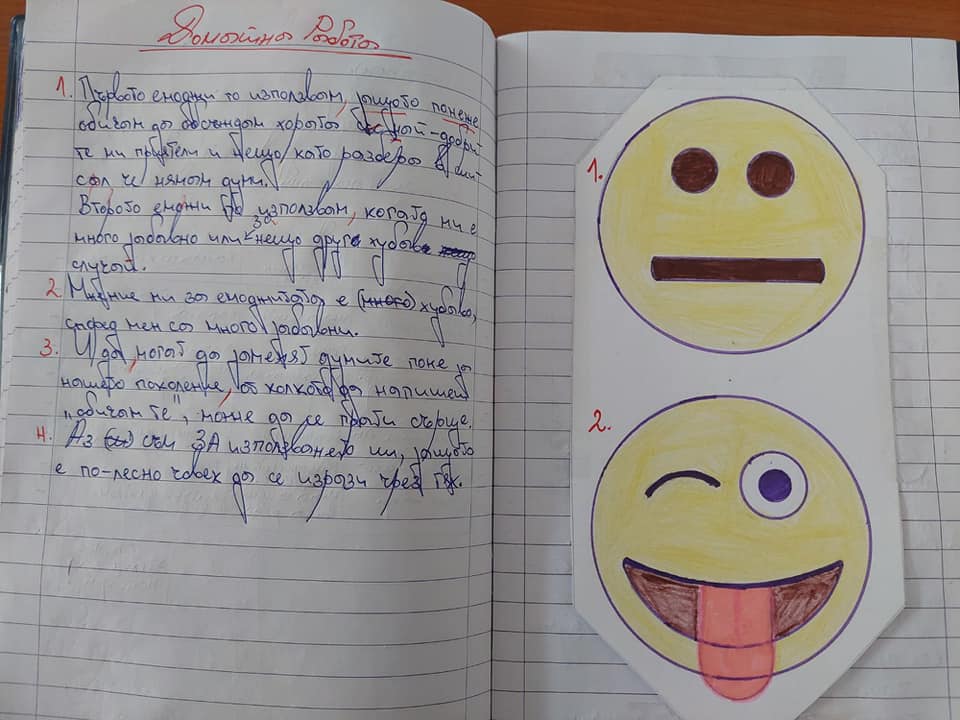 Домашна Работа
1. Първото емоджи го използвам, защото понеже
обичам да обсъждам хората с най-добри
те ми приятели и нещо като разбера в сми
съл че нямам думи.
Второто емоджи го използвам, когато ми е
много забавно или за нещо друго хубаво
случай.
2. Мнение ми за емоджитата е (много) хубаво,
според мен са много забавни.
3. И да, могат да заменят думите поне за
нашето поколение, от колкото да напишем
"обичам те", може да се прати сърце.
4. Аз съм ЗА използването им, защото
е по-лесно човек да се изрази чрез тях.
1.
2.